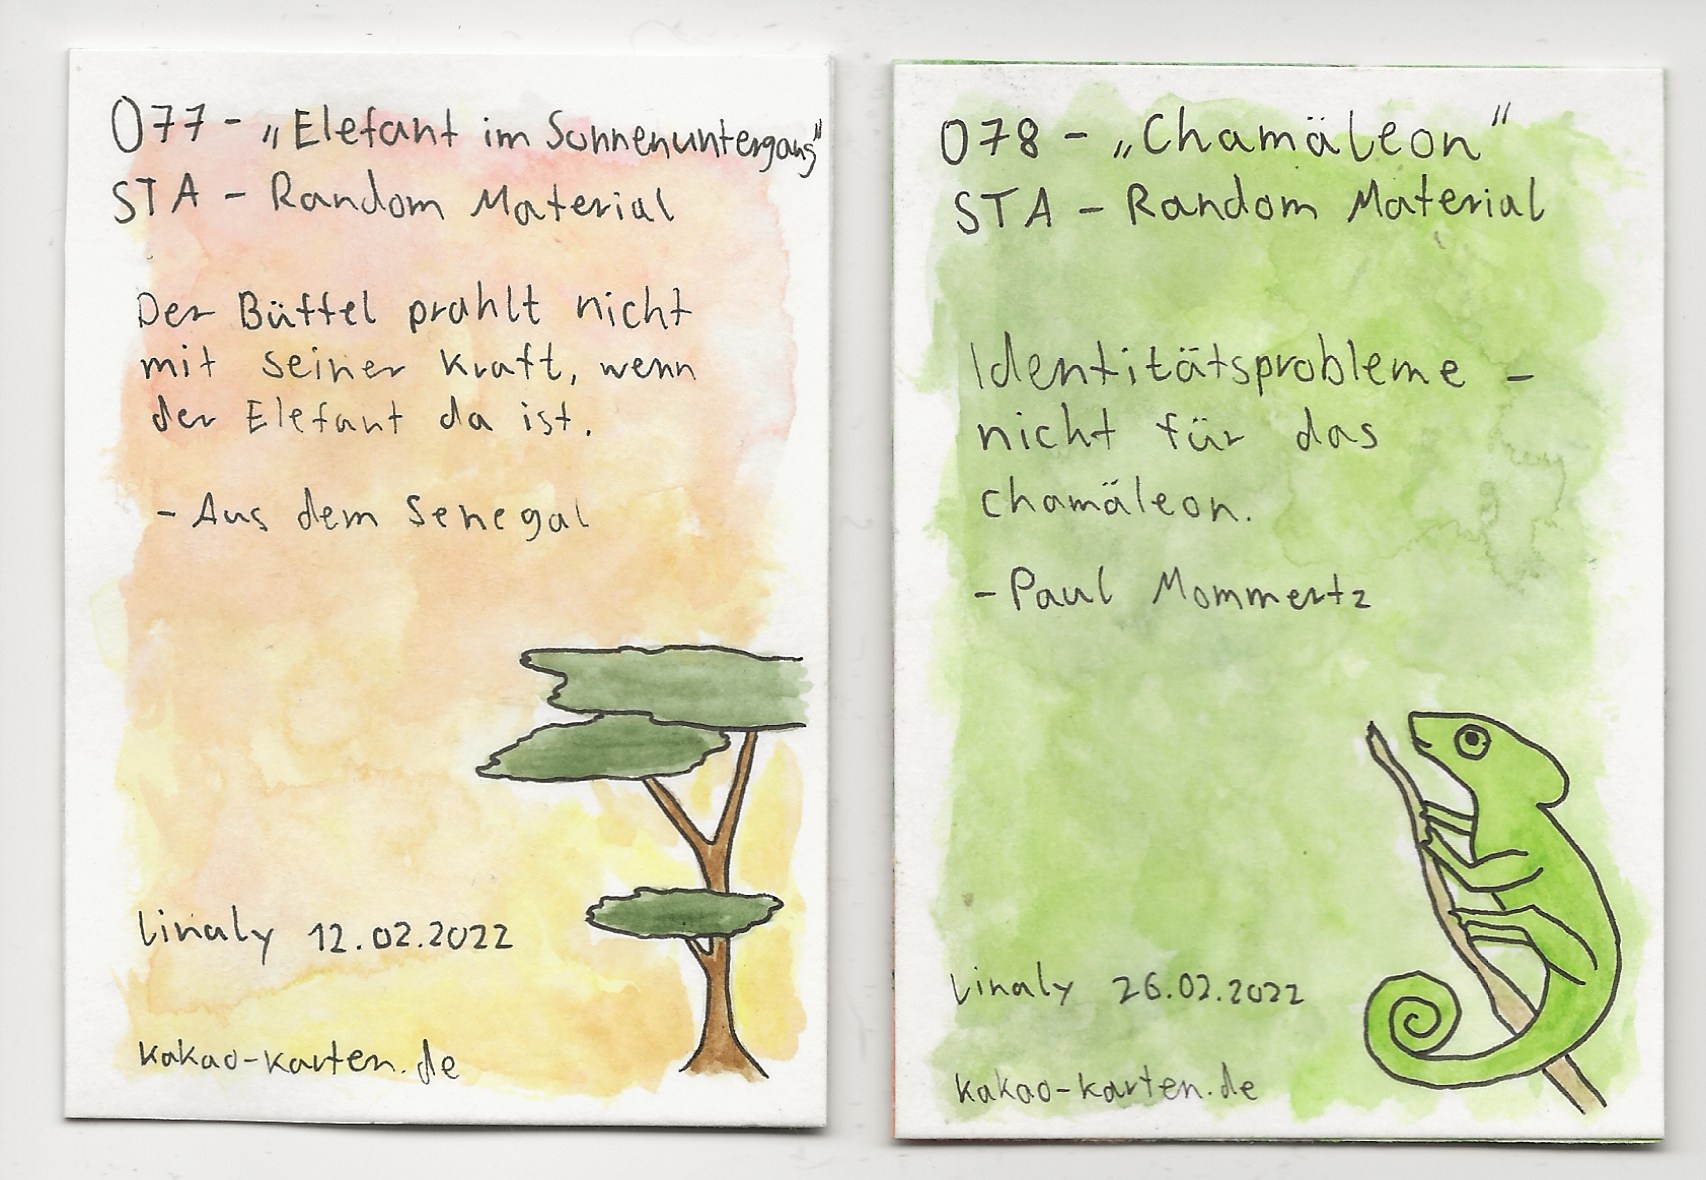 077 - „Elefant im Sonnenuntergang"
STA - Random Material
Der Büffel prahlt nicht
mit seiner Kraft, wenn
der Elefant da ist.
- Aus dem Senegal
Linaly 12.02.2022
kakao-karten.de
078 - „Chamäleon"
STA - Random Material
Identitätsprobleme -
nicht für das
Chamäleon.
- Paul Mommertz
Linaly 26.02.2022
kakao-karten.de